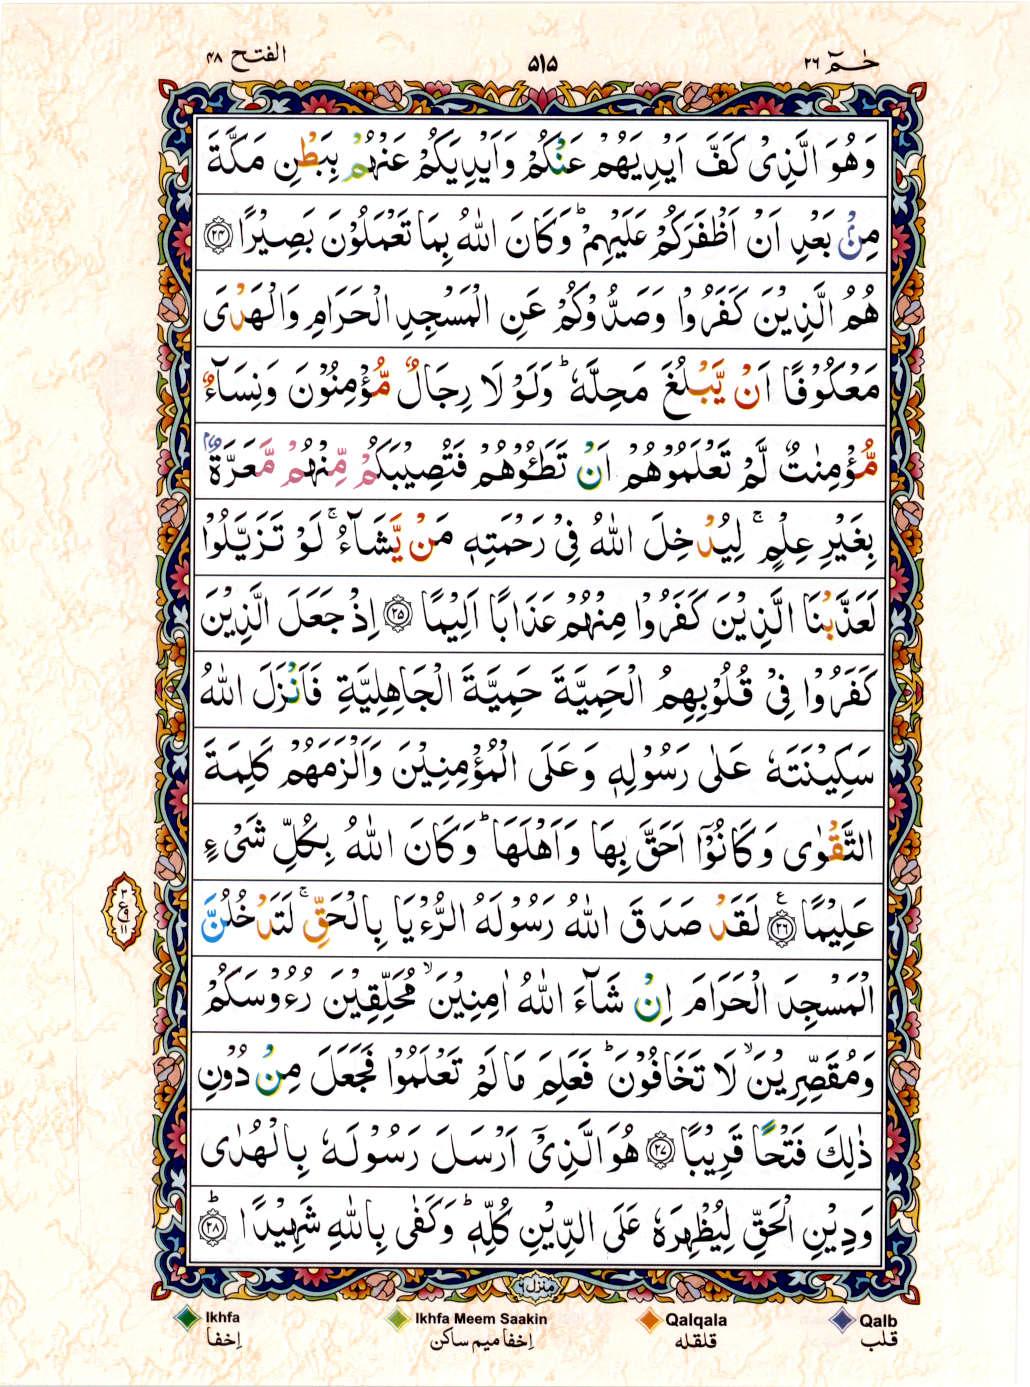 حٰـمٓ ۲۶
۵۱۵
الفتح ۴۸
وَهُوَ الَّذِىْ كَفَّ اَيْدِيَهُمْ عَنْكُمْ وَاَيْدِيَكُمْ عَنْهُمْ بِبَطْنِ مَكَّةَ
مِنْۢ بَعْدِ اَنْ اَظْفَرَكُمْ عَلَيْهِمْ ؕ وَكَانَ اللّٰهُ بِمَا تَعْمَلُوْنَ بَصِيْرًا ﴿۲۴﴾
هُمُ الَّذِيْنَ كَفَرُوْا وَصَدُّوْكُمْ عَنِ الْمَسْجِدِ الْحَرَامِ وَالْهَدْىَ
مَعْكُوْفًا اَنْ يَّبْلُغَ مَحِلَّهٗ ؕ وَلَوْ لَا رِجَالٌ مُّؤْمِنُوْنَ وَنِسَآءٌ
مُّؤْمِنٰتٌ لَّمْ تَعْلَمُوْهُمْ اَنْ تَطَـُٔوْهُمْ فَتُصِيْبَكُمْ مِّنْهُمْ مَّعَرَّةٌۢ
بِغَيْرِ عِلْمٍ ۚ لِيُدْخِلَ اللّٰهُ فِىْ رَحْمَتِهٖ مَنْ يَّشَآءُ ۚ لَوْ تَزَيَّلُوْا
لَعَذَّبْنَا الَّذِيْنَ كَفَرُوْا مِنْهُمْ عَذَابًا اَلِيْمًا ﴿۲۵﴾ اِذْ جَعَلَ الَّذِيْنَ
كَفَرُوْا فِىْ قُلُوْبِهِمُ الْحَمِيَّةَ حَمِيَّةَ الْجَاهِلِيَّةِ فَاَنْزَلَ اللّٰهُ
سَكِيْنَتَهٗ عَلٰى رَسُوْلِهٖ وَعَلَى الْمُؤْمِنِيْنَ وَاَلْزَمَهُمْ كَلِمَةَ
التَّقْوٰى وَكَانُوْۤا اَحَقَّ بِهَا وَاَهْلَهَا ؕ وَكَانَ اللّٰهُ بِكُلِّ شَىْءٍ
عَلِيْمًا ﴿۲۶﴾ ع لَقَدْ صَدَقَ اللّٰهُ رَسُوْلَهُ الرُّءْيَا بِالْحَقِّ ۚ لَتَدْخُلُنَّ
۳ ع ۹ ۱۱
الْمَسْجِدَ الْحَرَامَ اِنْ شَآءَ اللّٰهُ اٰمِنِيْنَ ۙ مُحَلِّقِيْنَ رُءُوْسَكُمْ
وَمُقَصِّرِيْنَ ۙ لَا تَخَافُوْنَ ؕ فَعَلِمَ مَا لَمْ تَعْلَمُوْا فَجَعَلَ مِنْ دُوْنِ
ذٰلِكَ فَتْحًا قَرِيْبًا ﴿۲۷﴾ هُوَ الَّذِىْۤ اَرْسَلَ رَسُوْلَهٗ بِالْهُدٰى
وَدِيْنِ الْحَقِّ لِيُظْهِرَهٗ عَلَى الدِّيْنِ كُلِّهٖ ؕ وَكَفٰى بِاللّٰهِ شَهِيْدًا ؕ ﴿۲۸﴾
منزل ۶
Ikhfa Ikhfa Meem Saakin Qalqala Qalb
اِخفا اِخفا میم ساکن قلقله قلب